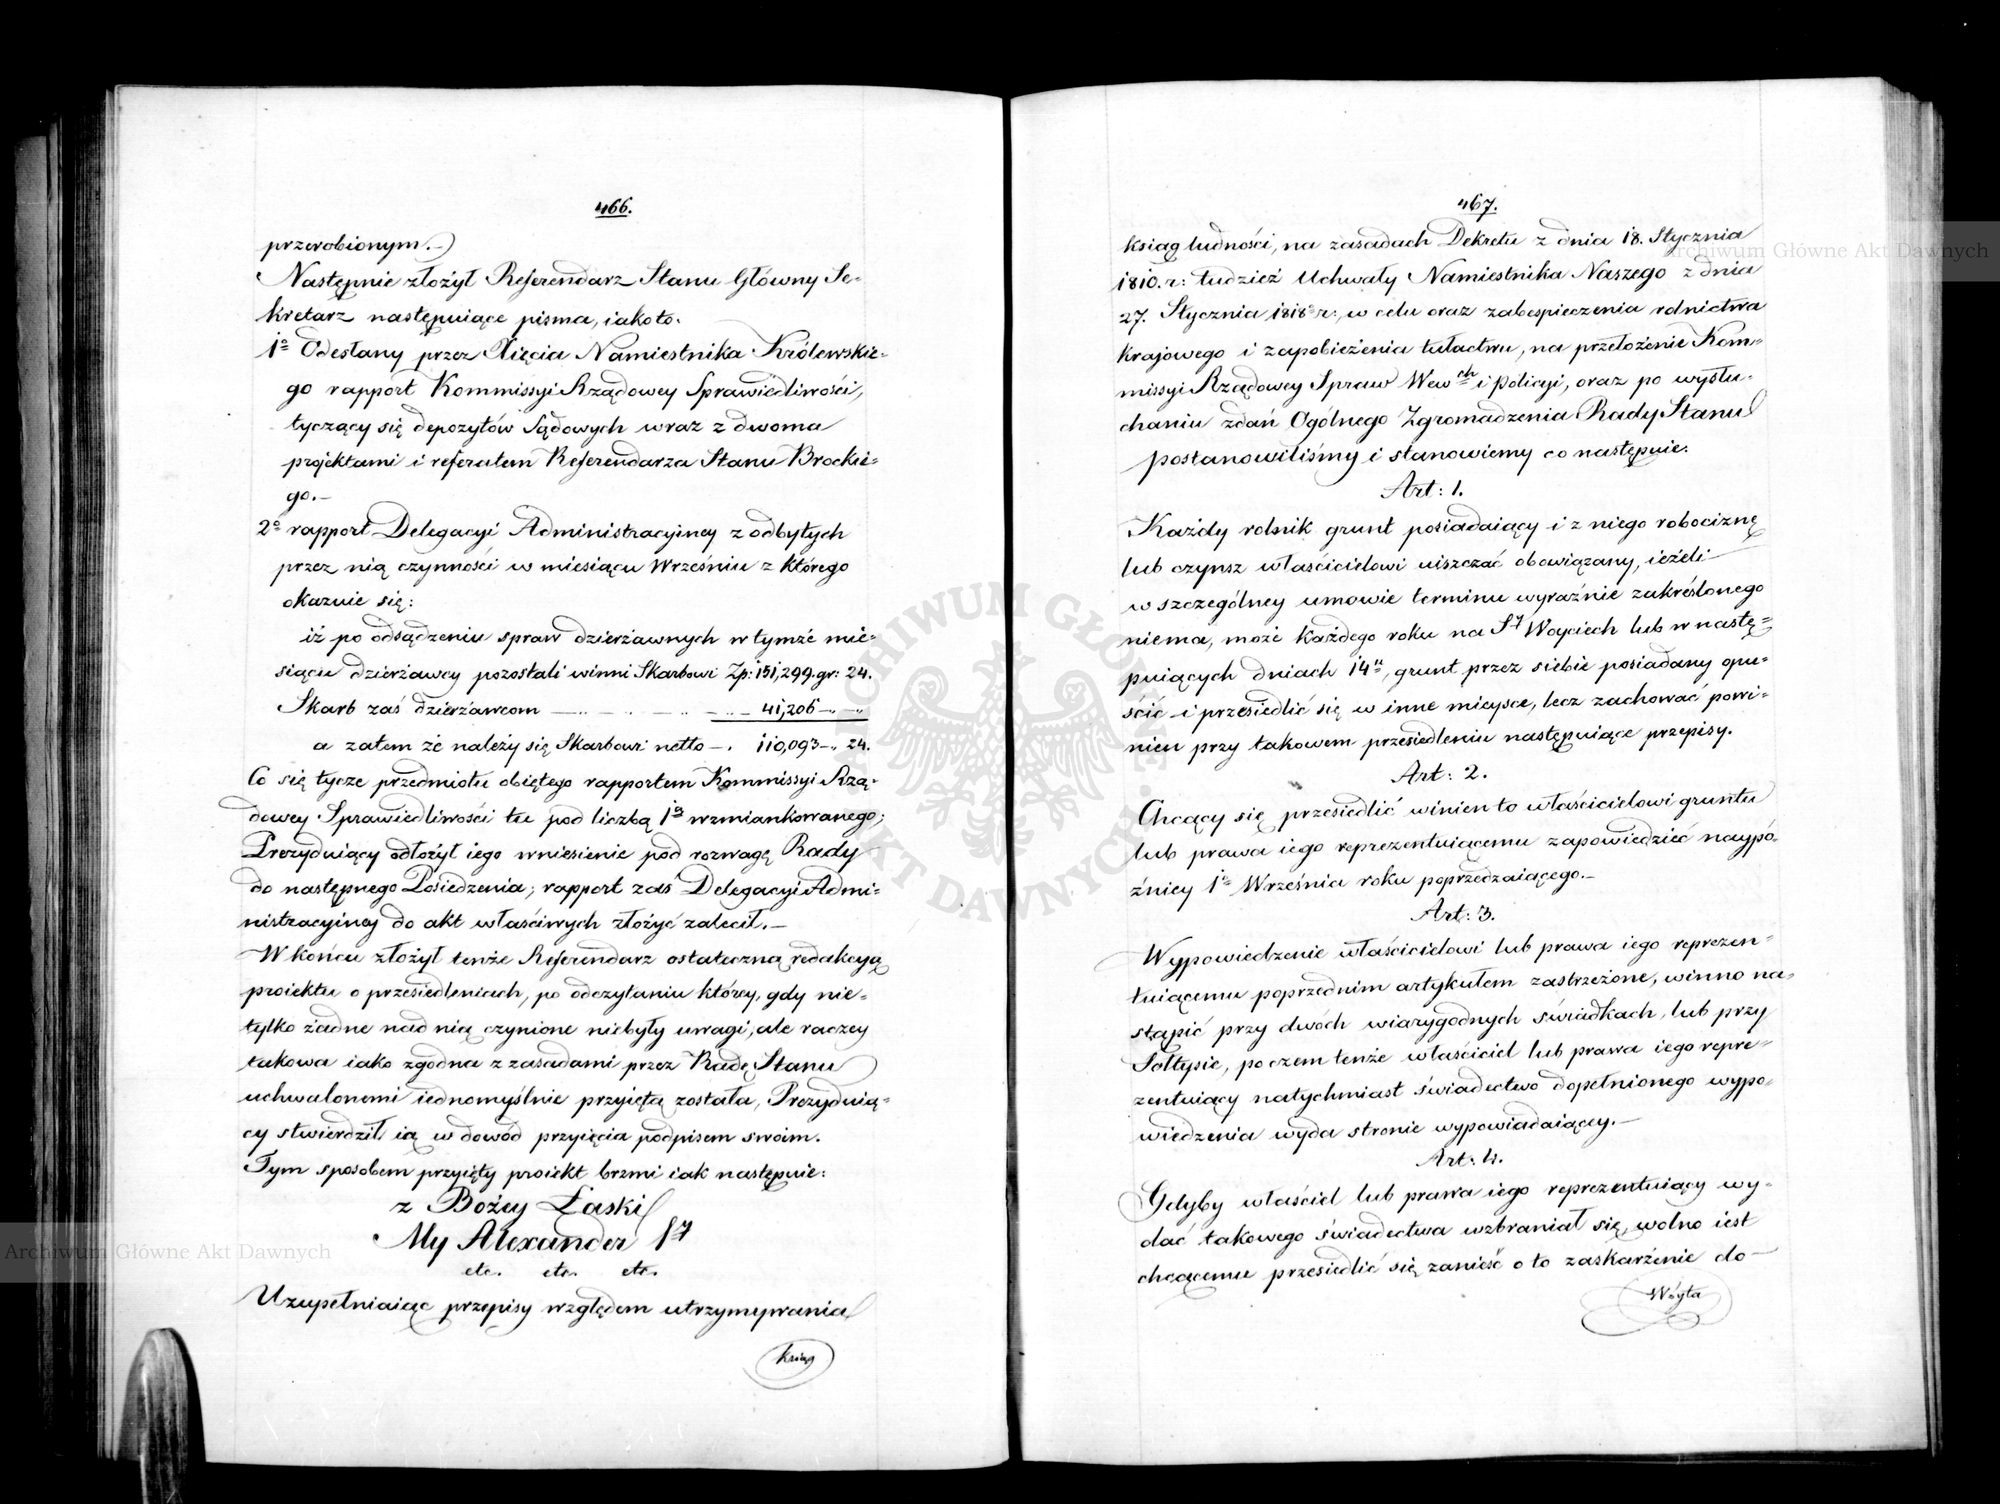 466.
przerobionym.—
Następnie złożył Referendarz Stanu Główny Se-
kretarz następuiące pisma, iakoto.
1o Odesłany przez Xięcia Namiestnika Królewskie-
go rapport Kommissyi Rządowey Sprawiedliwości,
tyczący się depozytów Sądowych wraz z dwoma
projektami i referatem Referendarza Stanu Brockie-
go.—
2o rapport Delegacyi Administracyiney z odbytych
przez nią czynności w miesiącu Wrześniu z którego
okazuie się:
iż po odsądzeniu spraw dzierżawnych w tymże mie-
siącu dzierżawcy pozostali winni Skarbowi Zp: 151,299. gr: 24.
Skarb zaś dzierżawcom — 41,206 —
a zatem że należy się Skarbowi netto —. 110,093 —. 24.
Co się tycze przedmiotu obiętego rapportem Kommissyi Rzą-
dowey Sprawiedliwości tu pod liczbą 1ą wzmiankowanego;
Prezyduiący odłożył iego wniesienie pod rozwagę Rady
do następnego Posiedzenia; rapport zaś Delegacyi Admi-
nistracyiney do akt właściwych złożyć zalecił.—
W końcu złożył tenże Referendarz ostateczną redakcyą
proiektu o przesiedleniach, po odczytaniu którey, gdy nie-
tylko żadne nad nią czynione niebyły uwagi, ale raczey
takowa iako zgodna z zasadami przez Radę Stanu
uchwalonemi iednomyślnie przyięta została, Prezyduią-
cy stwierdził ią w dowód przyięcia podpisem swoim.
Tym sposobem przyięty proiekt brzmi iak następuie:
z Bożey Łaski
My Alexander 1y
etc. etc. etc.
Uzupełniaiąc przepisy względem utrzymywania
ksiąg
467.
ksiąg ludności, na zasadach Dekretu z dnia 18. Stycznia
1810. r: tudzież Uchwały Namiestnika Naszego z dnia
27. Stycznia 1818o r:, w celu oraz zabespieczenia rolnictwa
krajowego i zapobieżenia tułactwu, na przełożenie Kom-
missyi Rządowey Spraw Wewch i Policyi, oraz po wysłu-
chaniu zdań Ogólnego Zgromadzenia Rady Stanu
postanowiliśmy i stanowiemy co następuie.
Art: 1.
Każdy rolnik grunt posiadaiący i z niego robociznę
lub czynsz właścicielowi uiszczać obowiązany, ieżeli
w szczególney umowie terminu wyraźnie zakreślonego
niema, może każdego roku na Sy Woyciech lub w nastę-
puiących dniach 14u, grunt przez siebie posiadany opu-
ścić i przesiedlić się w inne mieysce, lecz zachować powi-
nien przy takowem przesiedleniu następuiące przepisy.
Art: 2.
Chcący się przesiedlić winien to właścicielowi gruntu
lub prawa iego reprezentuiącemu zapowiedzieć naypó-
źniey 1o Września roku poprzedzaiącego.—
Art: 3.
Wypowiedzenie właścicielowi lub prawa iego reprezen-
tuiącemu poprzednim artykułem zastrzeżone, winno na-
stąpić przy dwóch wiarygodnych świadkach, lub przy
Sołtysie, poczem tenże właściciel lub prawa iego repre-
zentuiący natychmiast świadectwo dopełnionego wypo-
wiedzenia wyda stronie wypowiadaiącey.—
Art: 4.
Gdyby właściel lub prawa iego reprezentuiący wy-
dać takowego świadectwa wzbraniał się, wolno iest
chcącemu przesiedlić się zanieść o to zaskarżenie do
Wóyta
Archiwum Główne Akt Dawnych
Archiwum Główne Akt Dawnych
ARCHIWUM GŁÓWNE AKT DAWNYCH